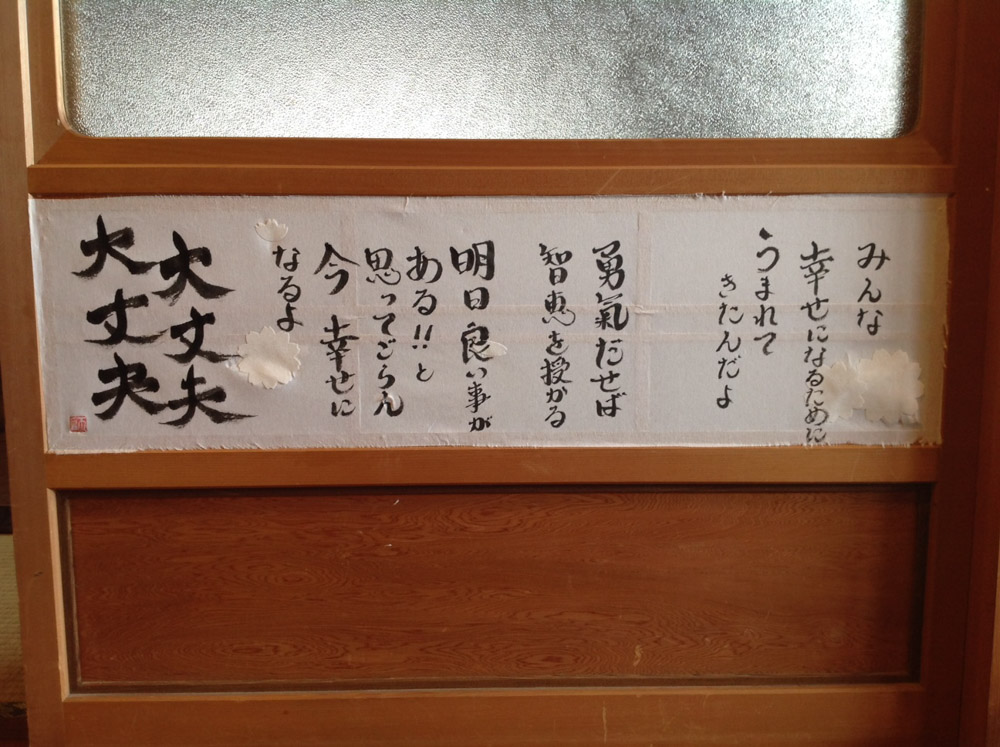 みんな
幸せになるために
うまれて
きたんだよ
勇氣だせば
智恵を授かる
明日良い事が
ある!!と
思ってごらん
今 幸せに
なるよ
大丈夫
大丈夫